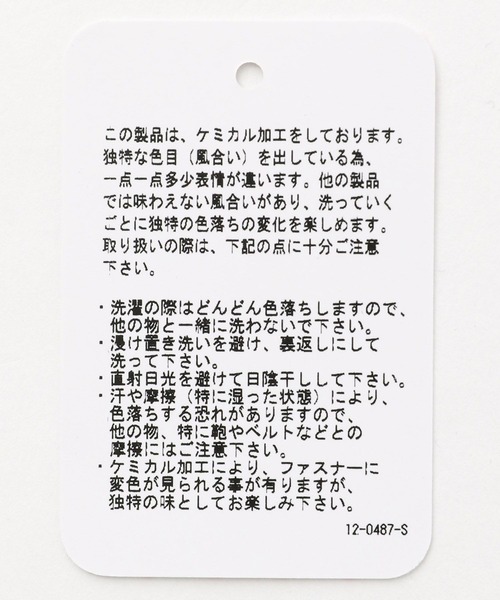 この製品は、ケミカル加工をしております。
独特な色目（風合い）を出している為、
一点一点多少表情が違います。他の製品
では味わえない風合いがあり、洗っていく
ごとに独特の色落ちの変化を楽しめます。
取り扱いの際は、下記の点に十分ご注意
下さい。
・洗濯の際はどんどん色落ちしますので、
他の物と一緒に洗わないで下さい。
・浸け置き洗いを避け、裏返しにして
洗って下さい。
・直射日光を避けて日陰干しして下さい。
・汗や摩擦（特に湿った状態）により、
色落ちする恐れがありますので、
他の物、特に鞄やベルトなどとの
摩擦にはご注意下さい。
・ケミカル加工により、ファスナーに
変色が見られる事が有りますが、
独特の味としてお楽しみ下さい。
12-0487-S